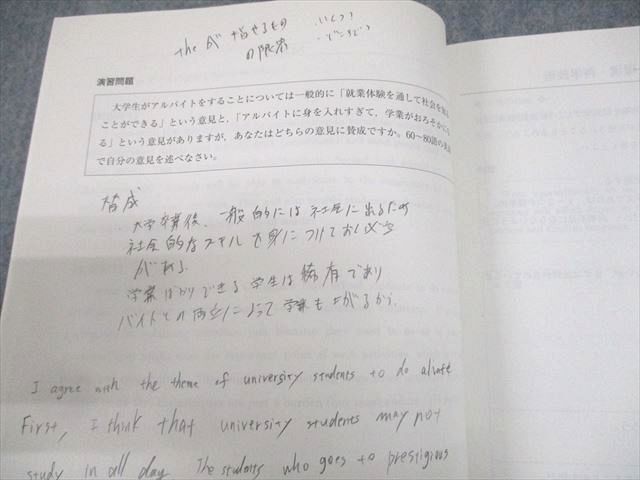 the が 指せるもの いくつ?
の限界 ・どこまで?
演習問題
大学生がアルバイトをすることについては一般的に「就業体験を通して社会を知る
ことができる」という意見と、「アルバイトに身を入れすぎて、学業がおろそかにな
る」という意見がありますが、あなたはどちらの意見に賛成ですか。60〜80語の英語
で自分の意見を述べなさい。
賛成
・大学卒業後、一般的には社会に出るため
社会的なスキルを身につけておく必要
がある
・学業ばかりできる学生は稀有であり
バイトとの両立によって学業も上がるから.
I agree with the theme of university students to do
First, I think that university students may not
study in all day. The students who goes to prestigious